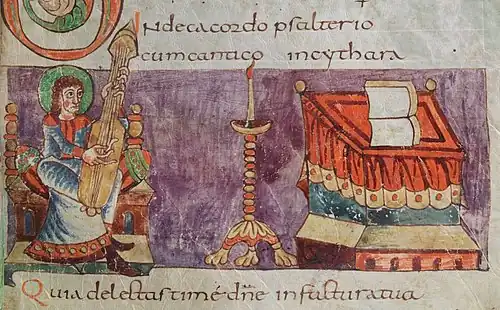 In decacordo psalterio
cum cantico in cythara
Quia delectasti me dñe in facturatua